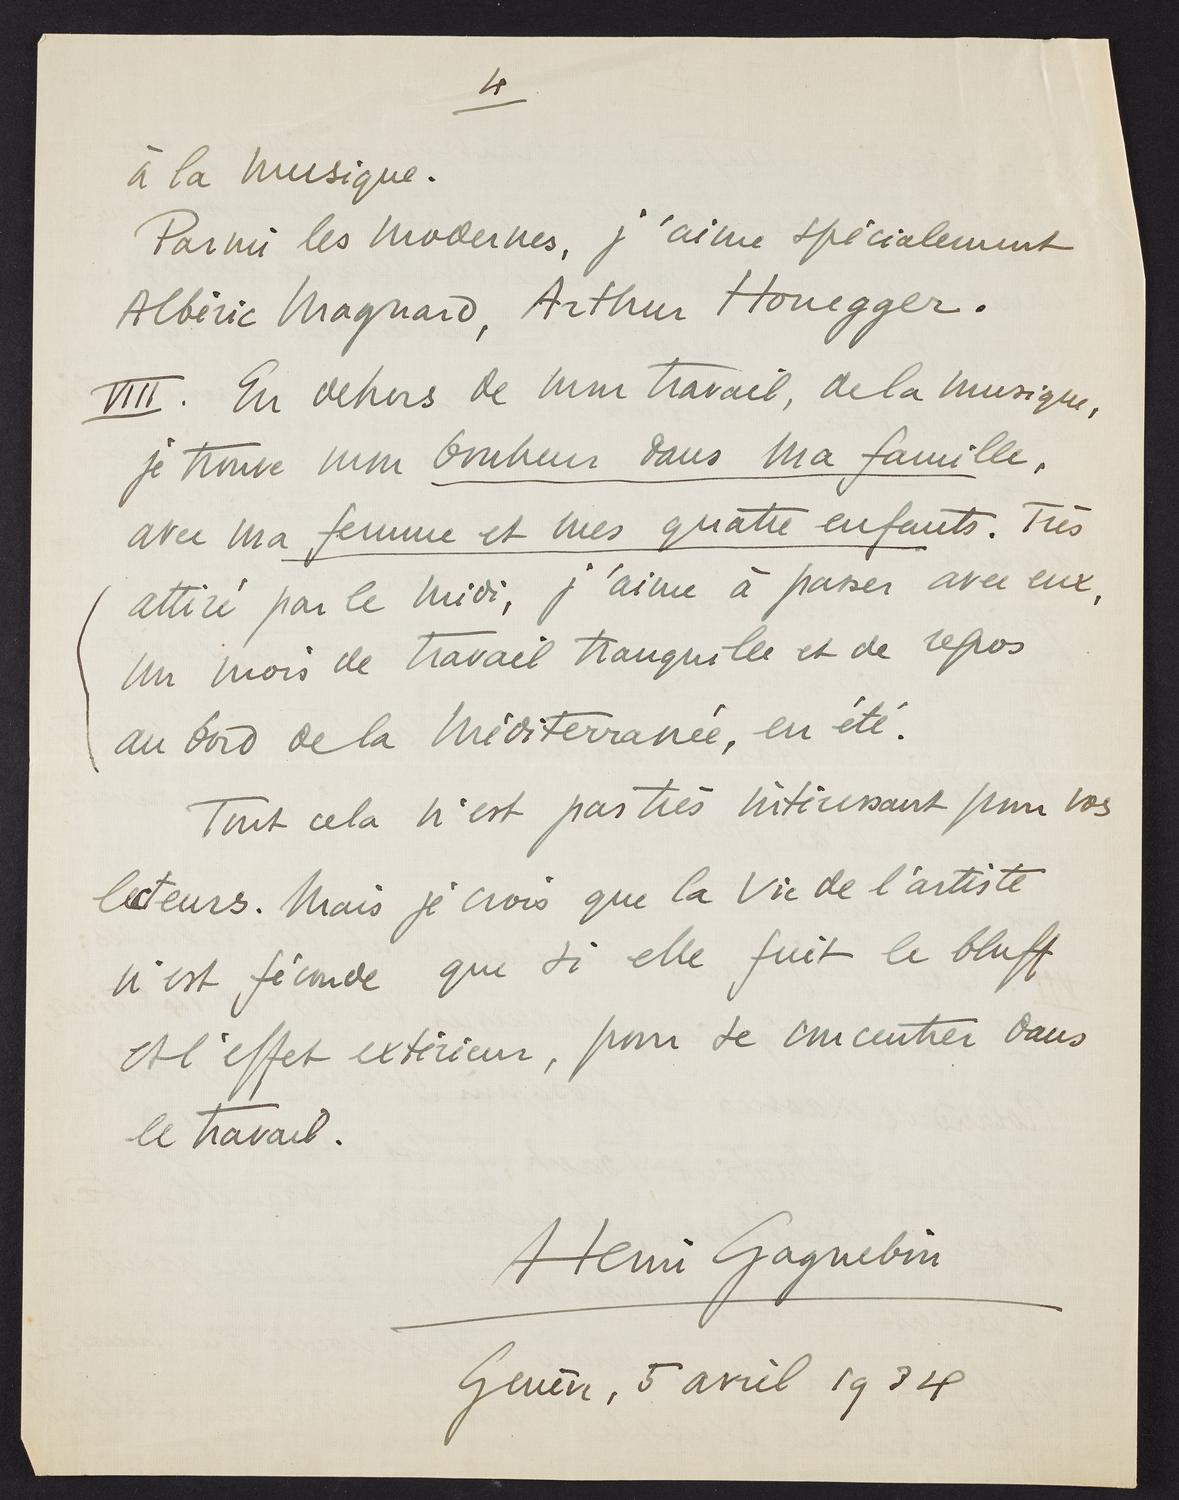 4
à la musique.
Parmi les modernes, j'aime spécialement
Albéric Magnard, Arthur Honegger.
VIII. En dehors de mon travail, de la musique,
je trouve mon bonheur dans ma famille,
avec ma femme et mes quatre enfants. Très
attiré par le midi, j'aime à passer avec eux,
un mois de travail tranquille et de repos
au bord de la Méditerranée, en été.
Tout cela n'est pas très intéressant pour vos
lecteurs. Mais je crois que la vie de l'artiste
n'est féconde que si elle fuit le bluff
et l'effet extérieur, pour se concentrer dans
le travail.
Henri Gagnebin
Genève, 5 avril 1934